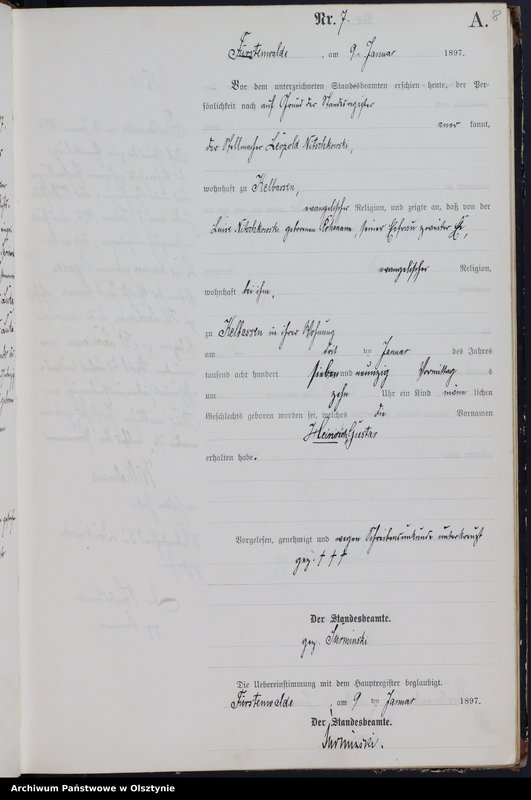 Nr. 7.
A. 8
Fürstenwalde, am 9ten Januar 1897.
Vor dem unterzeichneten Standesbeamten erschien heute, der Per-
sönlichkeit nach auf Grund der Standesregister
aner kannt,
der Stellmacher Leopold Nitschkowski,
wohnhaft zu Kelbassen,
evangelischer Religion, und zeigte an, daß von der
Luise Nitschkowski geborenen seiner Ehefrau zweiter Ehe,
evangelischer Religion,
wohnhaft bei ihm,
zu Kelbassen in ihrer Wohnung
am drit ten Januar des Jahres
tausend acht hundert sieben und neunzig Vormittag s
um zehn Uhr ein Kind männ lichen
Geschlechts geboren worden sei, welches die Vornamen
Heinrich Gustav
erhalten habe.
Vorgelesen, genehmigt und wegen Schreibensunkunde unterkreuzt
gez. † † †
Der Standesbeamte.
gez. Surminski
Die Uebereinstimmung mit dem Hauptregister beglaubigt.
Fürstenwalde, am 9 ten Januar 1897.
Der Standesbeamte.
Surminski.
Archiwum Państwowe w Olsztynie